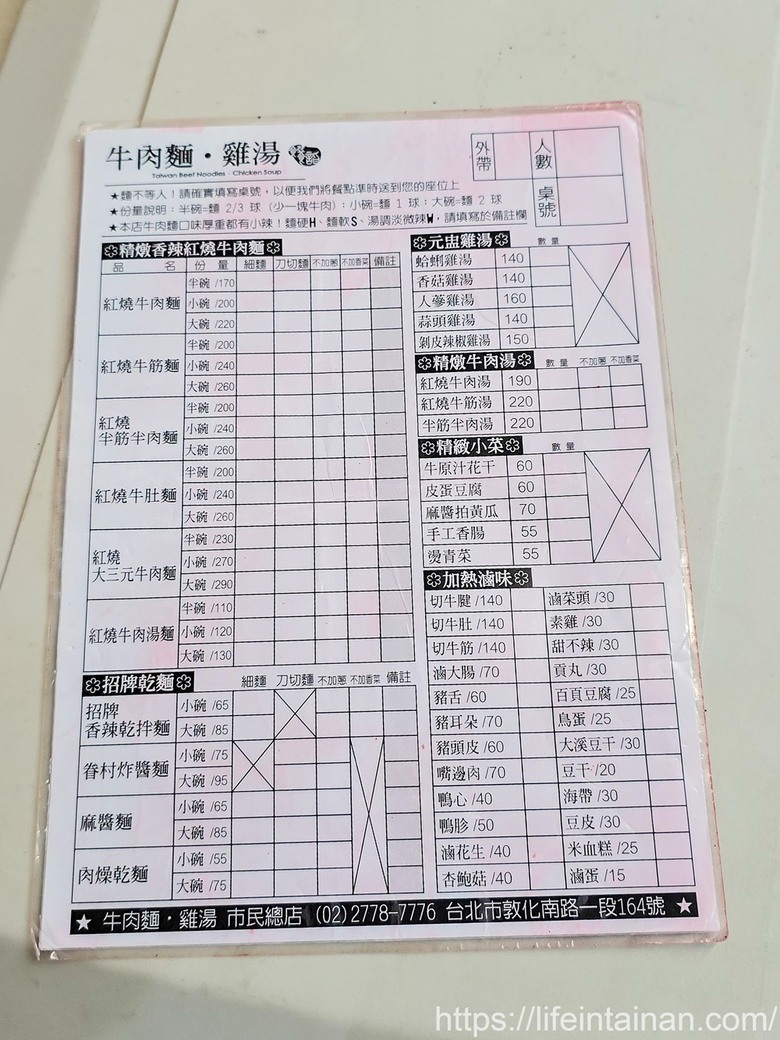 牛肉麵·雞湯
Taiwan Beef Noodles · Chicken Soup
外帶
人數
桌號
★麵不等人！請確實填寫桌號，以便我們將餐點準時送到您的座位上
★份量說明：半碗=麵 2/3 球（少一塊牛肉）：小碗=麵 1 球：大碗=麵 2 球
★本店牛肉麵口味厚重都有小辣！麵硬H、麵軟S、湯調淡微辣W，請填寫於備註欄
精燉香辣紅燒牛肉麵
品名 份量 細麵 刀切麵 不加蔥 不加香菜 備註
紅燒牛肉麵
半碗 /170
小碗 /200
大碗 /220
紅燒牛筋麵
半碗 /200
小碗 /240
大碗 /260
紅燒
半筋半肉麵
半碗 /200
小碗 /240
大碗 /260
紅燒牛肚麵
半碗 /200
小碗 /240
大碗 /260
紅燒
大三元牛肉麵
半碗 /230
小碗 /270
大碗 /290
紅燒牛肉湯麵
半碗 /110
小碗 /120
大碗 /130
招牌乾麵 細麵 刀切麵 不加蔥 不加香菜 備註
招牌
香辣乾拌麵
小碗 /65
大碗 /85
眷村炸醬麵
小碗 /75
大碗 /95
麻醬麵
小碗 /65
大碗 /85
肉燥乾麵
小碗 /55
大碗 /75
元盅雞湯 數量
蛤蜊雞湯 140
香菇雞湯 140
人蔘雞湯 160
蒜頭雞湯 140
剝皮辣椒雞湯 150
精燉牛肉湯 數量 不加蔥 不加香菜
紅燒牛肉湯 190
紅燒牛筋湯 220
半筋半肉湯 220
精緻小菜 數量
牛原汁花干 60
皮蛋豆腐 60
麻醬拍黃瓜 70
手工香腸 55
燙青菜 55
加熱滷味
切牛腱 /140 滷菜頭 /30
切牛肚 /140 素雞 /30
切牛筋 /140 甜不辣 /30
滷大腸 /70 貢丸 /30
豬舌 /60 百頁豆腐 /25
豬耳朵 /70 鳥蛋 /25
豬頭皮 /60 大溪豆干 /30
嘴邊肉 /70 豆干 /20
鴨心 /40 海帶 /30
鴨胗 /50 豆皮 /30
滷花生 /40 米血糕 /25
杏鮑菇 /40 滷蛋 /15
★ 牛肉麵·雞湯 市民總店 (02)2778-7776 台北市敦化南路一段164號 ★
https://lifeintainan.com/